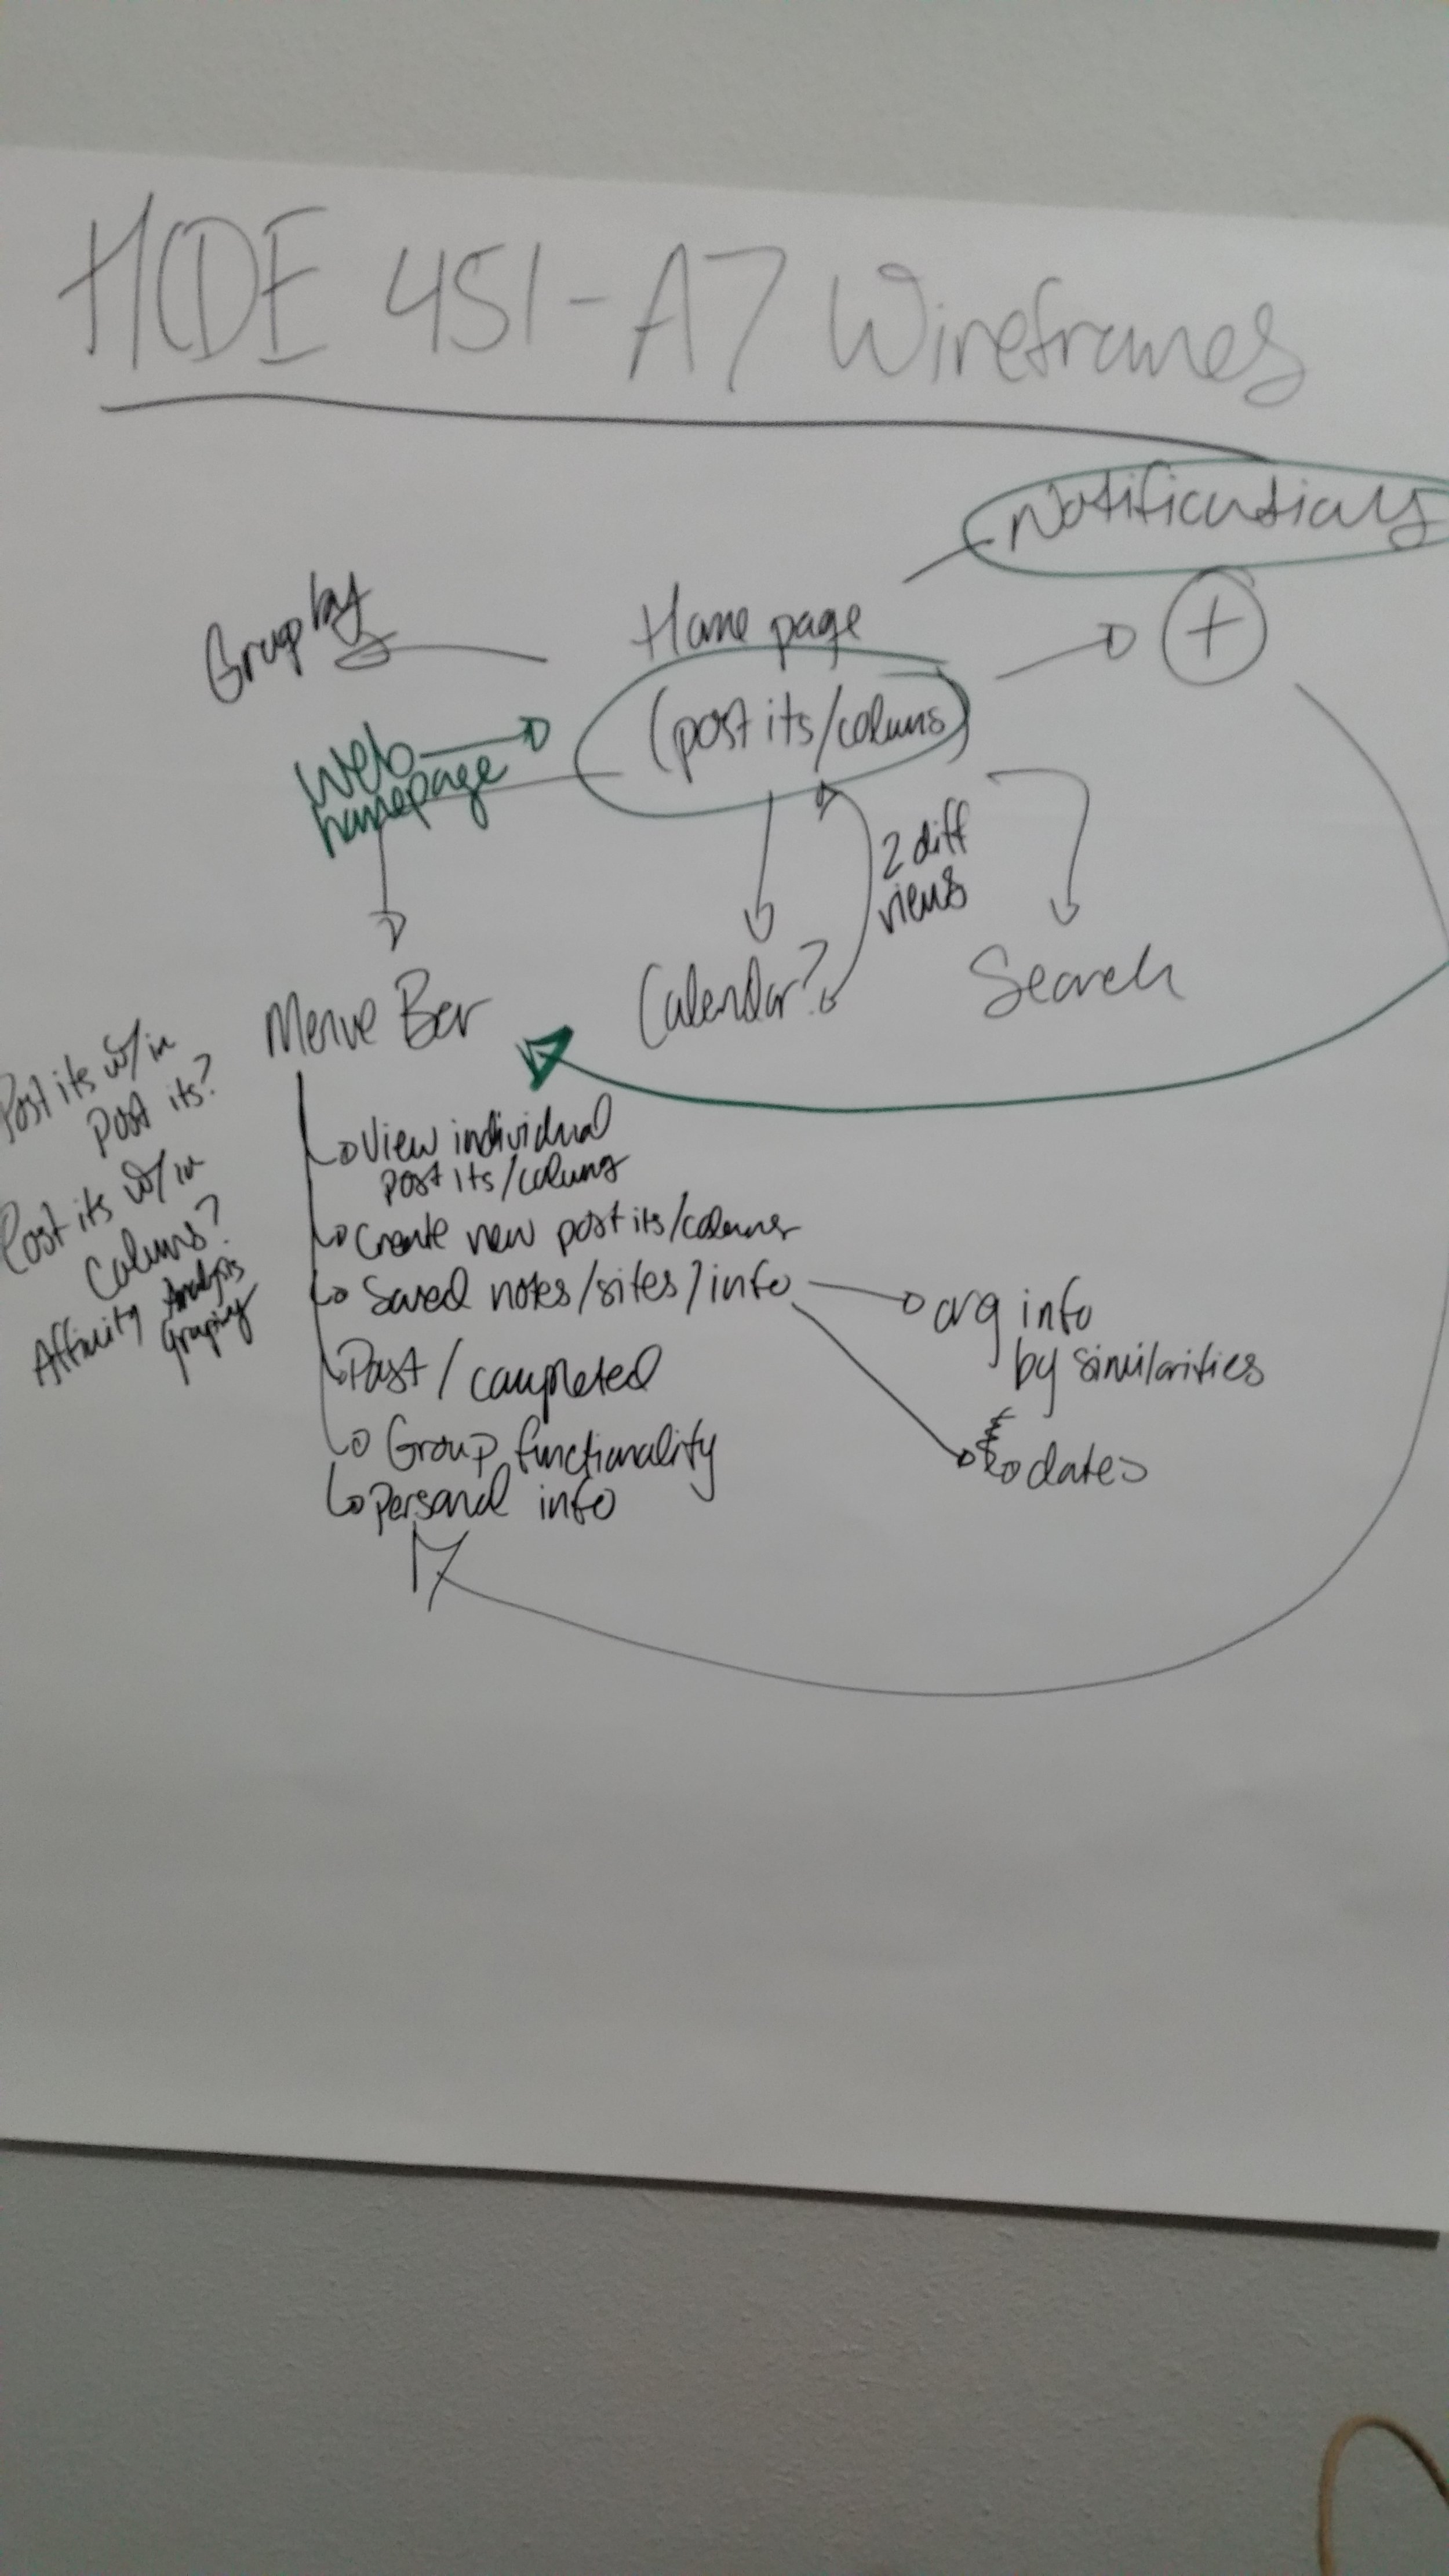 HCDE 451-A7 Wireframes
Notifications
Group by
Home page
+
(post its/colums)
Web
homepage
2 diff
views
Menue Bar
Calendar?
Search
Post its w/in
Post its?
Post its w/in
Colums?
Affinity Analysis
Grouping
View individual
post its/colums
Create new post its/colums
Saved notes/sites/info
org info
by similarities
Past/completed
dates
Group functionality
personal info